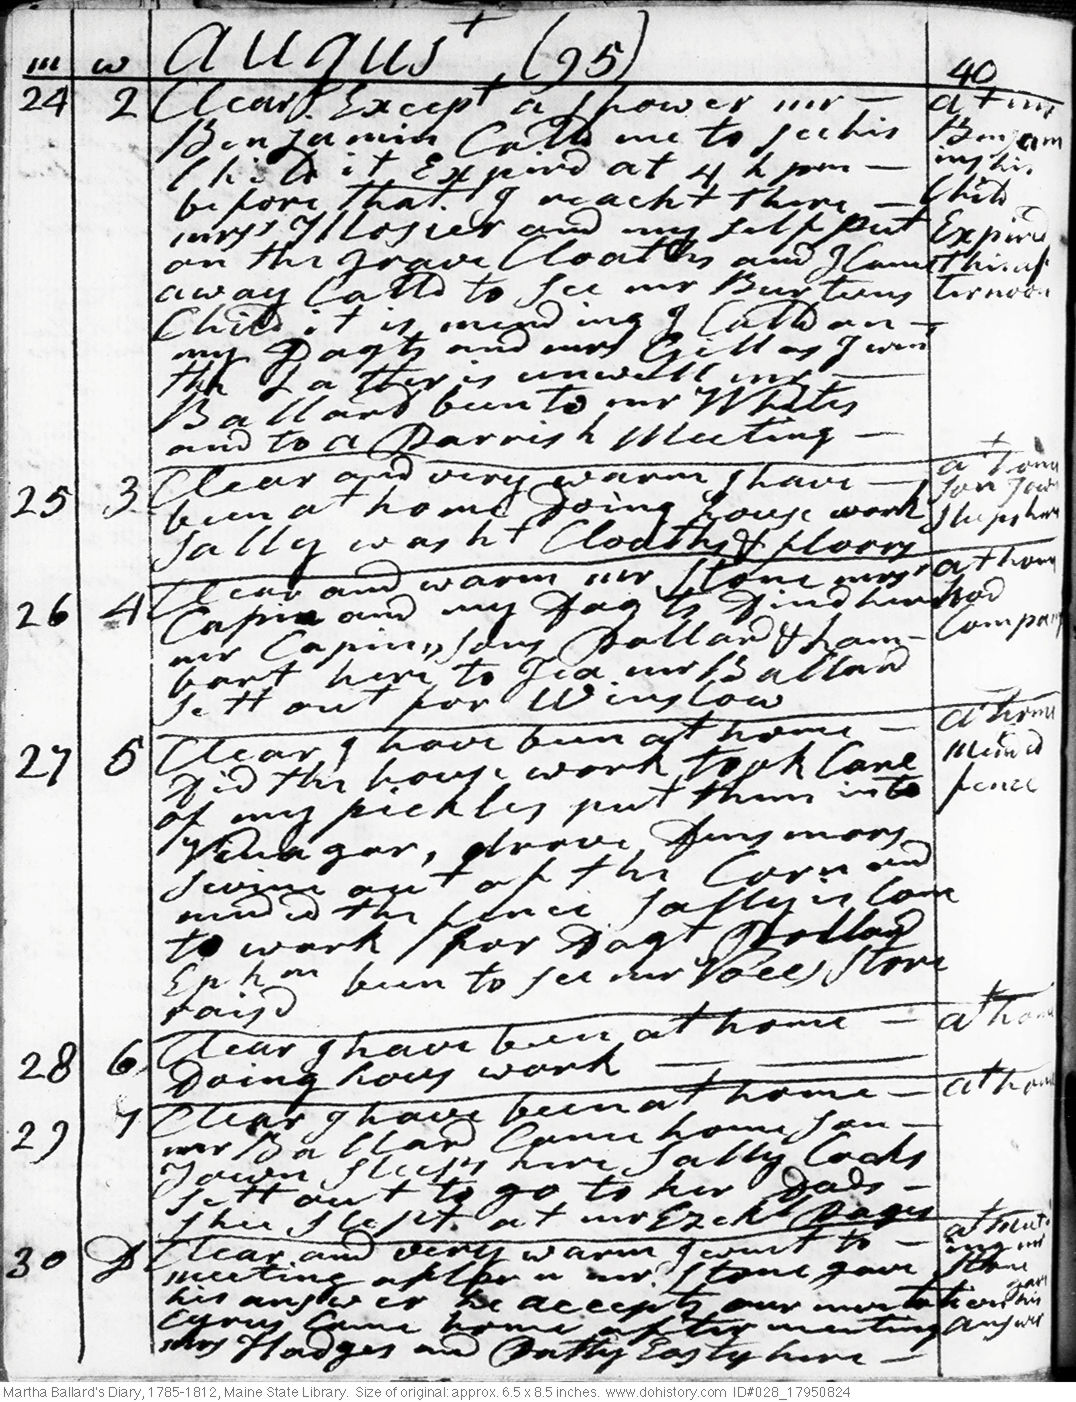 m w August (95) 40
24 2 Clear. Except a shower mr —
Benjamin Calld me to see his
Child it Expird at 4 h pm —
before that I reacht there —
mrss Mosier and my self put
on the grave Cloaths and I Came
away Calld to see mr Burtuns
Child it is mending I Calld on —
my Dagts and mrs Gill as I went
the Latter is unwell mr —
Ballard been to mr Whites
and to a Parrish Meeting —
at mr
Benjam
ins his
Child
Expird
this af
ternoon
25 3 Clear and very warm I have —
been at home Doing house work
Sally washt Cloaths & floors
at home
son Town
sleeps here
26 4 Clear and warm mr Stone mrs
Capin and my Dagts Dind here
mr Capin, sons Pollard & Lam-
bart here to Tea mr Ballard
sett out for Winslow
at home
had
Company
27 5 Clear I have been at home —
Did the house work took Care
of my pickles put them into
Vinagar, drove Densmores
swine out of the Corn and
mended the fence Sally is Come
to work for Dagt Pollard
Ephm been to see mr Store
raisd
at home
mended
fence
28 6 Clear I have been at home —
Doing hous work —
at home
29 7 Clear I have been at home —
mr Ballard Came home son —
Town sleeps here Sally Cocks
sett out to go to her Dads —
shee slept at mr Ezekl Pages
at home
30 D Clear and very warm I went to —
meeting afternn mr Stone gave
his answer he accepts our invitation
Cyrus Came home after meeting
mrs Hodges and Patty Easty here —
at meet
ing mr
Stone
gave
his
answer
Martha Ballard's Diary, 1785-1812, Maine State Library. Size of original: approx. 6.5 x 8.5 inches. www.dohistory.com ID#028_17950824